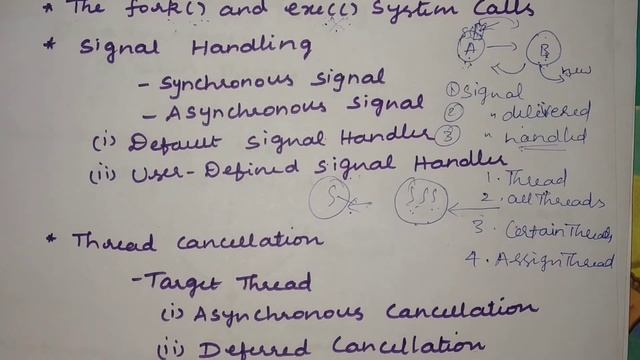 * The fork() and exec() System Calls
* Signal Handling
- Synchronous Signal
- Asynchronous Signal
(i) Default Signal Handler
(ii) User-Defined Signal Handler
A B
① Signal
② " delivered
③ " handled
1. Thread
2. all Threads
3. Certain Threads
4. Assign Thread
* Thread Cancellation
- Target Thread
(i) Asynchronous Cancellation
(ii) Deferred Cancellation